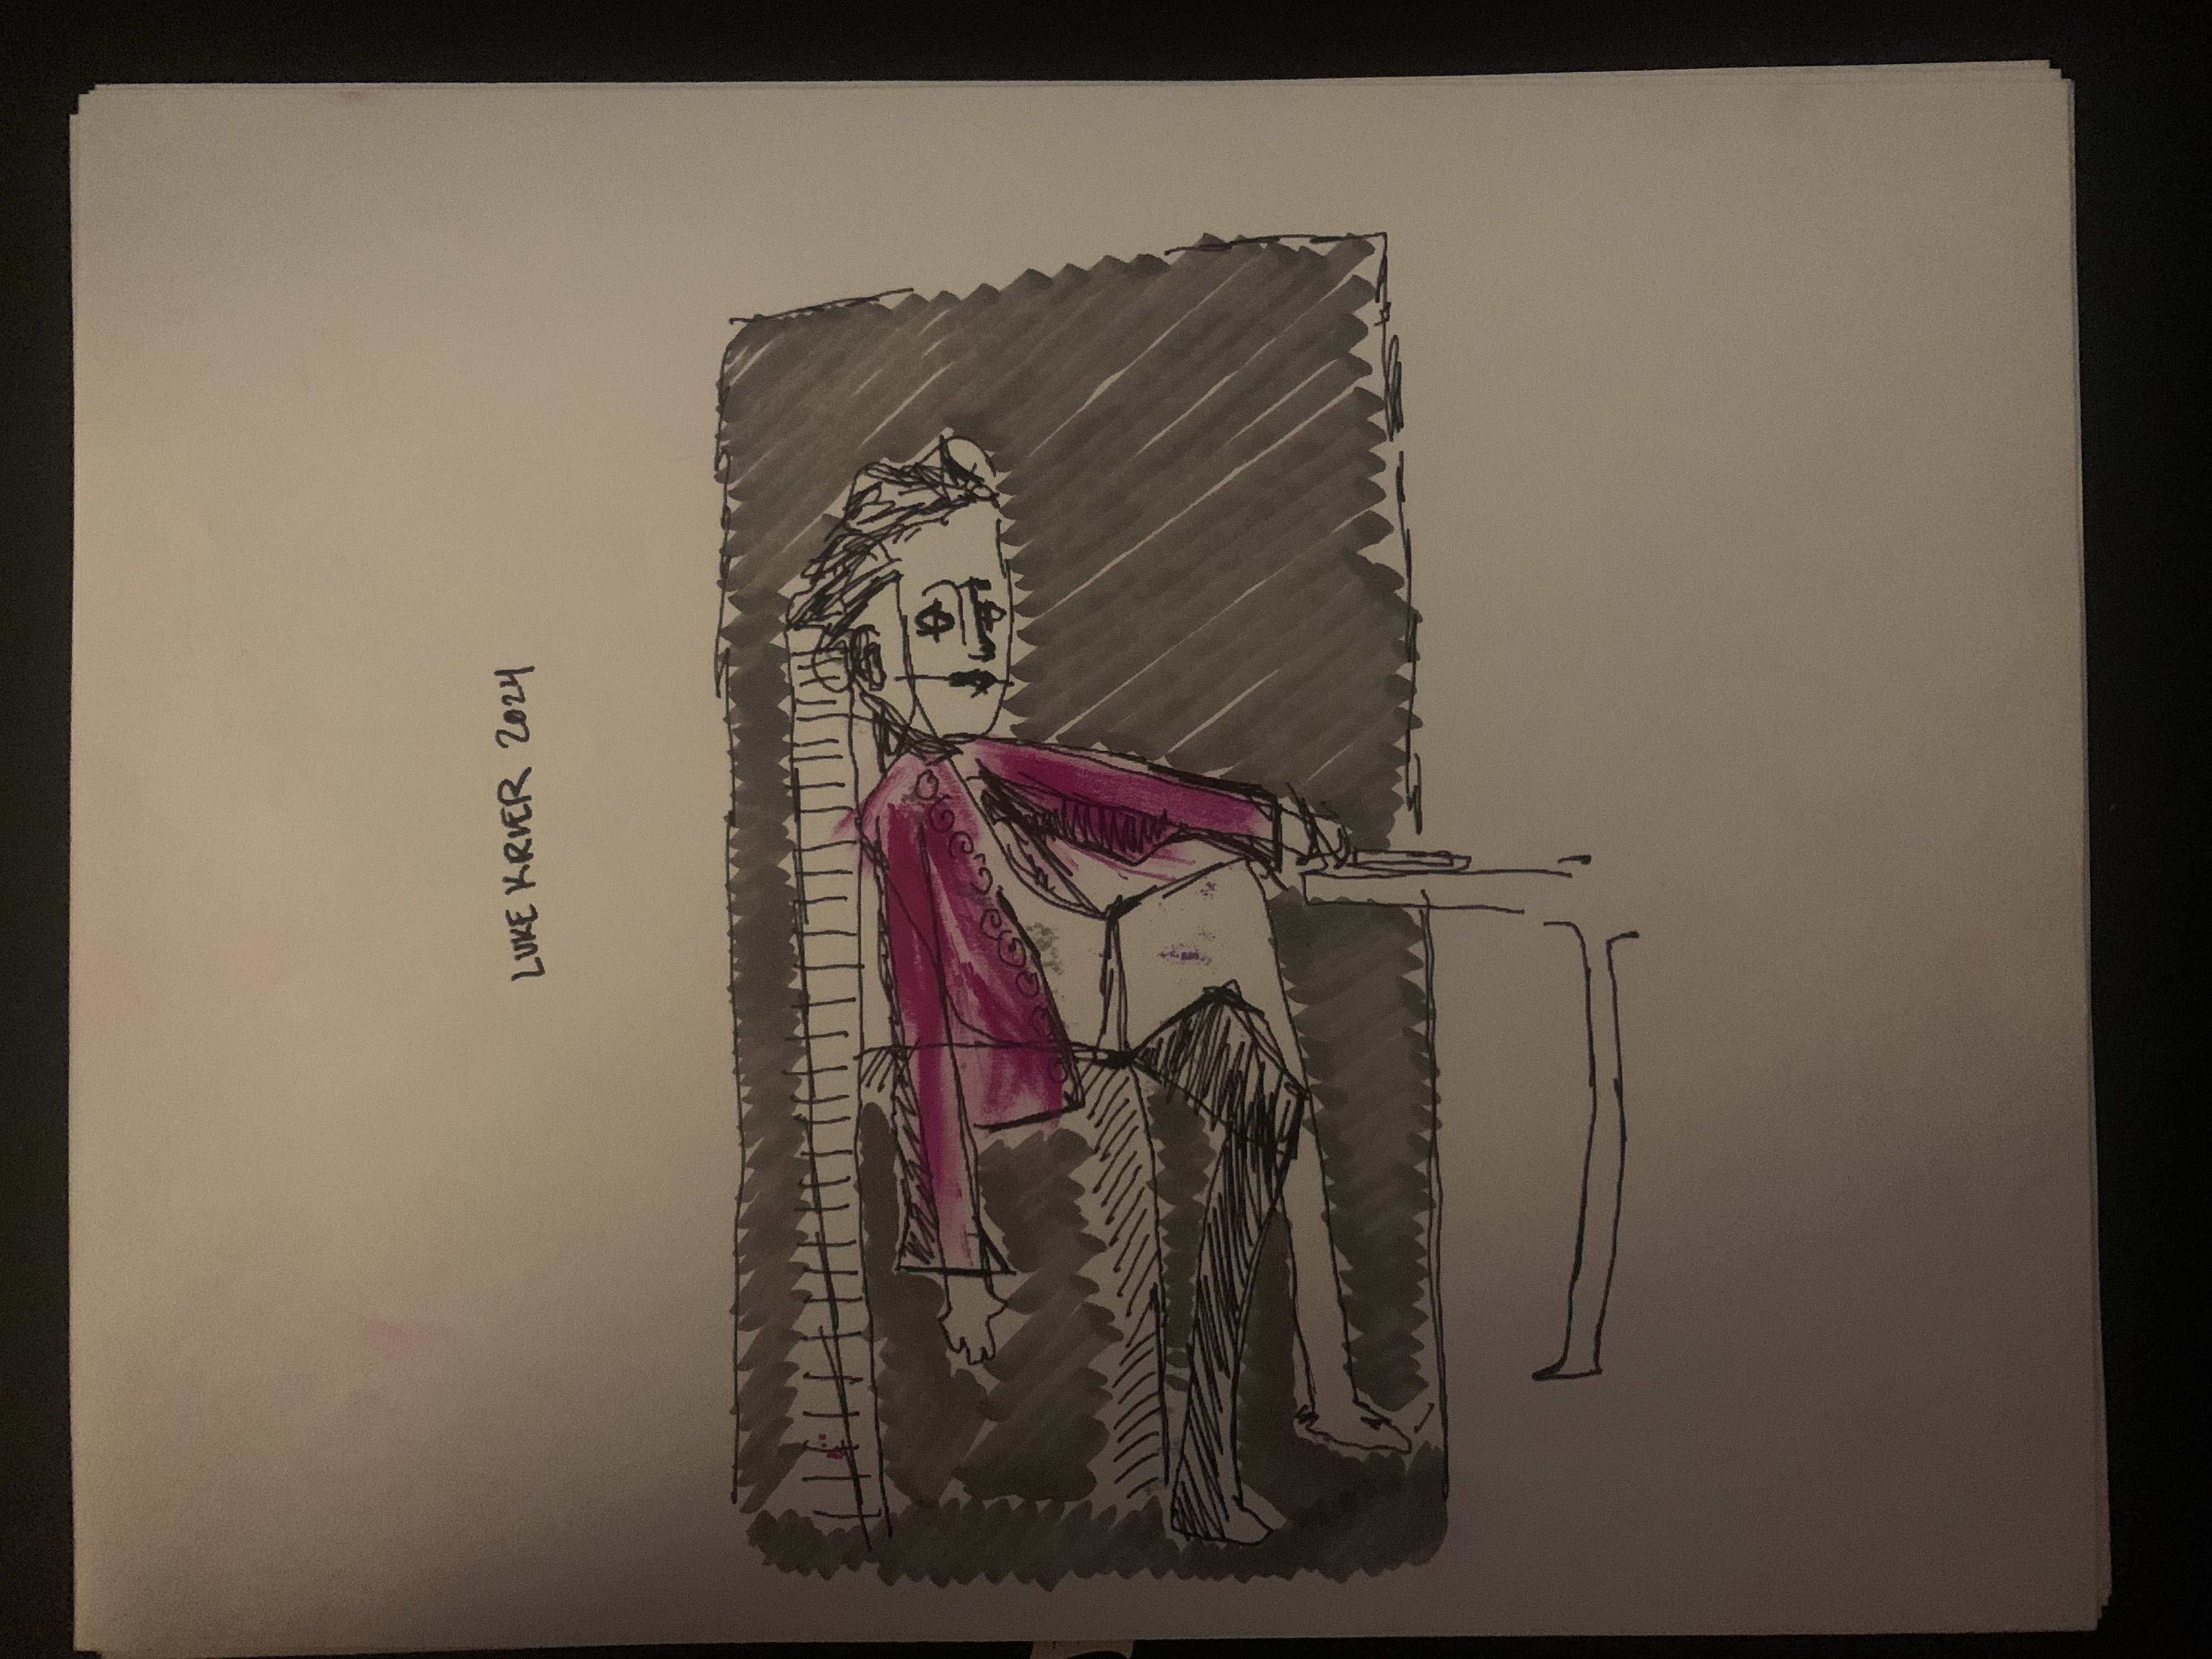 LUKE KRIER 2024